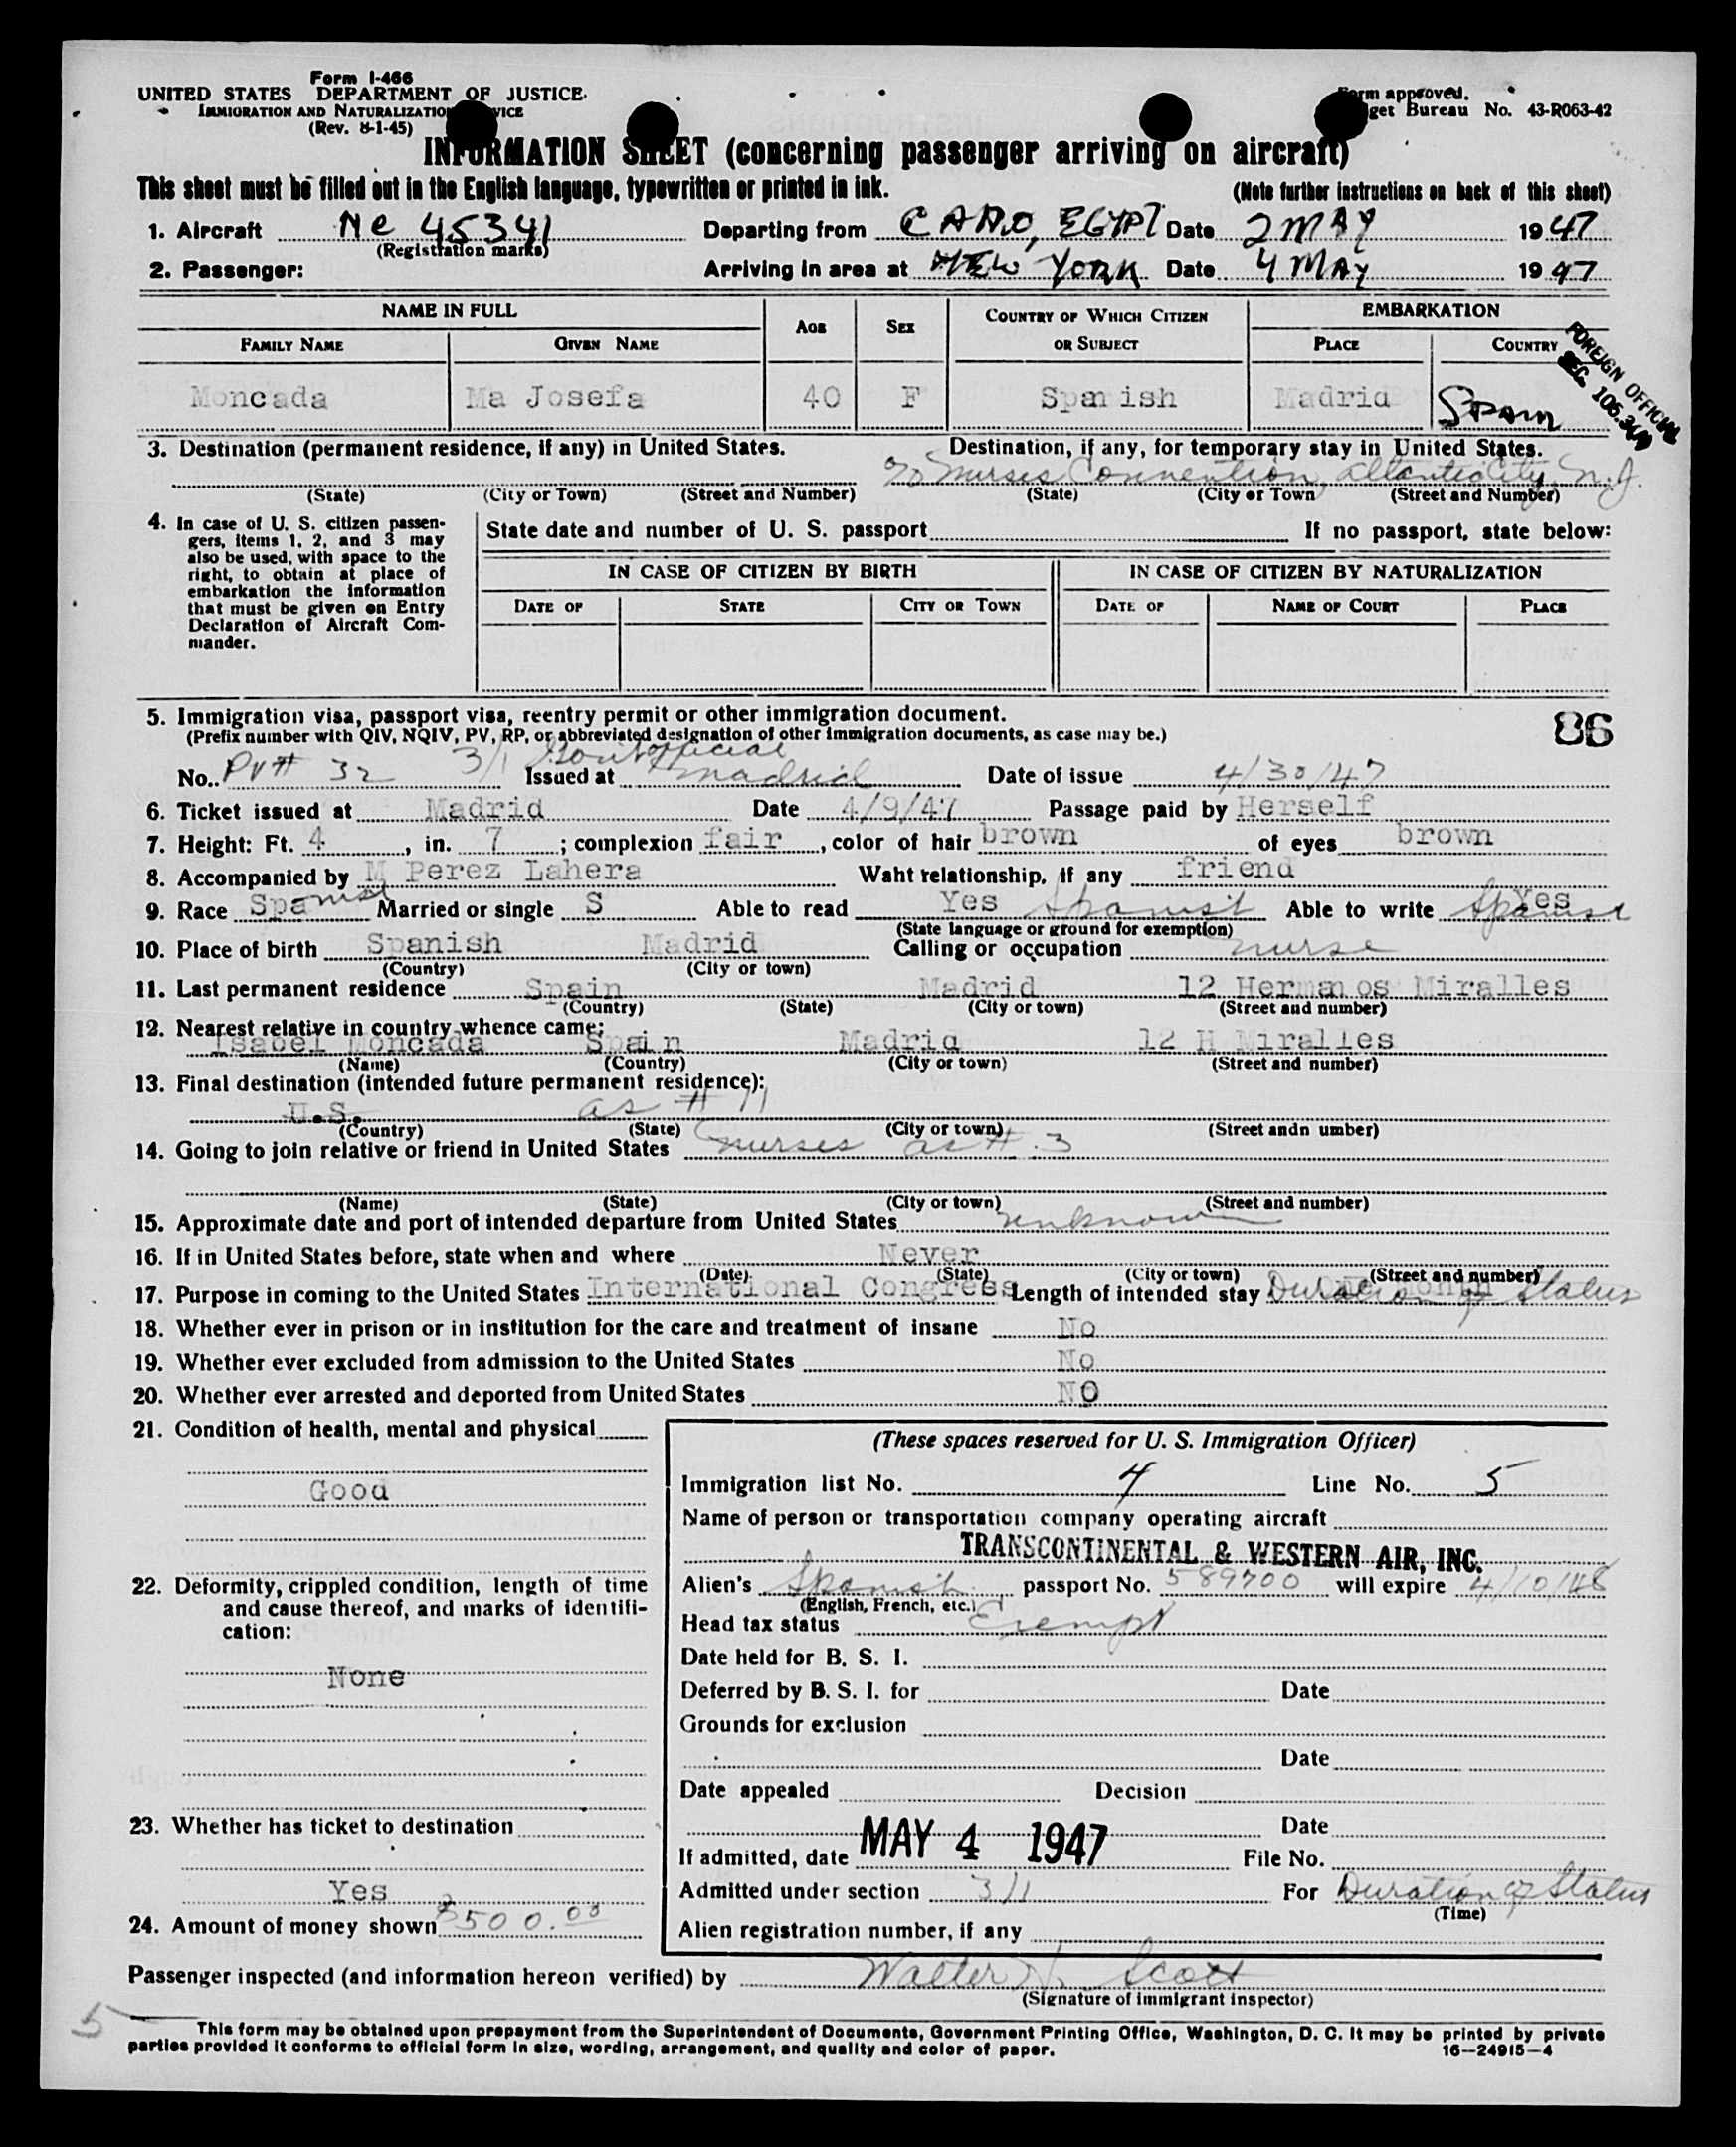 Form I-466
UNITED STATES DEPARTMENT OF JUSTICE
IMMIGRATION AND NATURALIZATION
(Rev. 8-1-45)
Form approved.
Budget Bureau No. 43-R063-42
INFORMATION SHEET (concerning passenger arriving on aircraft)
This sheet must be filled out in the English language, typewritten or printed in ink. (Note further instructions on back of this sheet)
1. Aircraft Nc 45341 Departing from CAIRO, EGYPT Date 2 MAY 1947
(Registration marks)
2. Passenger: Arriving in area at NEW YORK Date 4 MAY 1947
NAME IN FULL AGE SEX COUNTRY OF WHICH CITIZEN OR SUBJECT EMBARKATION
FAMILY NAME GIVEN NAME PLACE COUNTRY
FOREIGN OFFICIAL
SEC.
Moncada Ma Josefa 40 F Spanish Madrid Spain
3. Destination (permanent residence, if any) in United States. Destination, if any, for temporary stay in United States.
c/o Nurses Convention, Atlantic City, N.J.
(State) (City or Town) (Street and Number) (State) (City or Town (Street and Number)
4. In case of U. S. citizen passen-
gers, items 1, 2, and 3 may
also be used, with space to the
right, to obtain at place of
embarkation the information
that must be given on Entry
Declaration of Aircraft Com-
mander.
State date and number of U. S. passport If no passport, state below:
IN CASE OF CITIZEN BY BIRTH IN CASE OF CITIZEN BY NATURALIZATION
DATE OF STATE CITY OR TOWN DATE OF NAME OF COURT PLACE
5. Immigration visa, passport visa, reentry permit or other immigration document.
(Prefix number with QIV, NQIV, PV, RP, or abbreviated designation of other immigration documents, as case may be.)
86
No. PV# 32 3/1 Gov't official Issued at Madrid Date of issue 4/30/47
6. Ticket issued at Madrid Date 4/9/47 Passage paid by Herself
7. Height: Ft. 4, in. 7; complexion fair, color of hair brown of eyes brown
8. Accompanied by M Perez Lahera Waht relationship, if any friend
9. Race Spanish Married or single S Able to read Yes Spanish Able to write Yes Spanish
(State language or ground for exemption)
10. Place of birth Spanish Madrid Calling or occupation nurse
(Country) (City or town)
11. Last permanent residence Spain Madrid 12 Hermanos Miralles
(Country) (State) (City or town) (Street and number)
12. Nearest relative in country whence came:
Isabel Moncada Spain Madrid 12 H Miralles
(Name) (Country) (City or town) (Street and number)
13. Final destination (intended future permanent residence):
U.S. as # 11
(Country) (State) (City or town) (Street andn umber)
14. Going to join relative or friend in United States nurses as # 3
(Name) (State) (City or town) (Street and number)
15. Approximate date and port of intended departure from United States unknown
16. If in United States before, state when and where Never
(Date) (State) (City or town) (Street and number)
17. Purpose in coming to the United States International Congress Length of intended stay Duration of Status
18. Whether ever in prison or in institution for the care and treatment of insane No
19. Whether ever excluded from admission to the United States No
20. Whether ever arrested and deported from United States NO
21. Condition of health, mental and physical
Good
22. Deformity, crippled condition, length of time
and cause thereof, and marks of identifi-
cation:
None
23. Whether has ticket to destination
Yes
24. Amount of money shown $500.00
(These spaces reserved for U. S. Immigration Officer)
Immigration list No. 4 Line No. 5
Name of person or transportation company operating aircraft
TRANSCONTINENTAL & WESTERN AIR, INC.
Alien's Spanish passport No. 589700 will expire 4/10/48
(English, French, etc.)
Head tax status Exempt
Date held for B. S. I.
Deferred by B. S. I. for Date
Grounds for exclusion
Date
Date appealed Decision
Date
If admitted, date MAY 4 1947 File No.
Admitted under section 3/1 For Duration of Status
(Time)
Alien registration number, if any
Passenger inspected (and information hereon verified) by Walter N. Scott
(Signature of immigrant inspector)
5
This form may be obtained upon prepayment from the Superintendent of Documents, Government Printing Office, Washington, D. C. It may be printed by private
parties provided it conforms to official form in size, wording, arrangement, and quality and color of paper.
16—24915-4